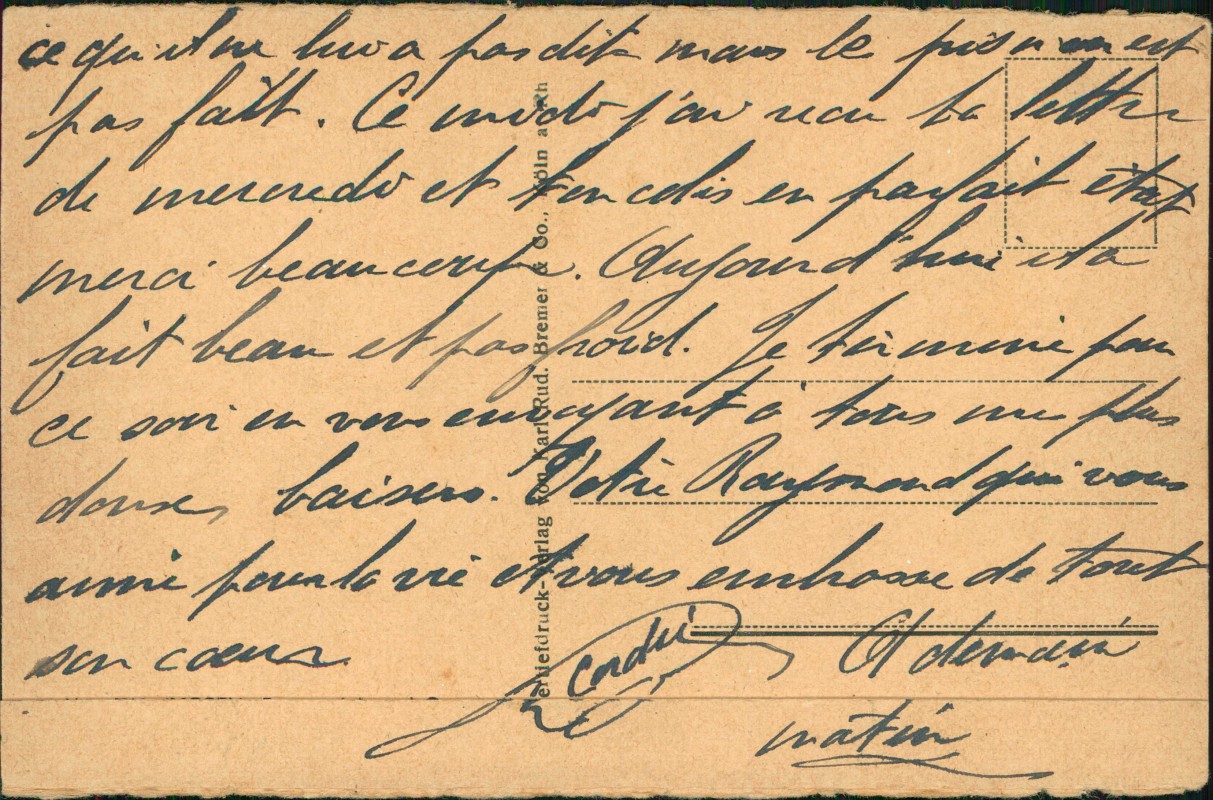 ce qu'il ne lui a pas dit mais le pis n en est
pas fait. Ce midi j'ai recu ta lettre
de mercredi et ton colis en parfait état
merci beaucoup. Aujourd'hui il a
fait beau et pas froid. Je termine pour
ce soir en vous envoyant à tous mes plus
douces baisers. Votre Raymond qui vous
aime pour la vie et vous embrasse de tout
son cœur.
A demain
matin
ertiefdruck-Verlag von Karl Rud. Bremer & Co., Köln a. Rh